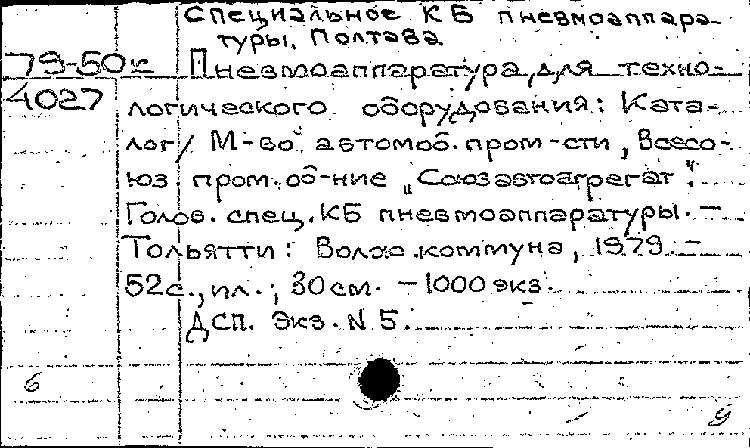 Специальное КБ пневмоаппара-
туры, Полтава
79-50к Пневмоаппаратура для техно-
4027 логического оборудования: Ката-
лог / М-во автомоб. пром-сти, Всесо-
юз. пром. об-ние „Союзавтоагрегат".
Голов. спец. КБ пневмоаппаратуры. —
Тольятти: Волж. коммуна, 1979. —
52 с., ил.; 30 см. — 1000 экз.
ДСП. Экз. N 5.
6